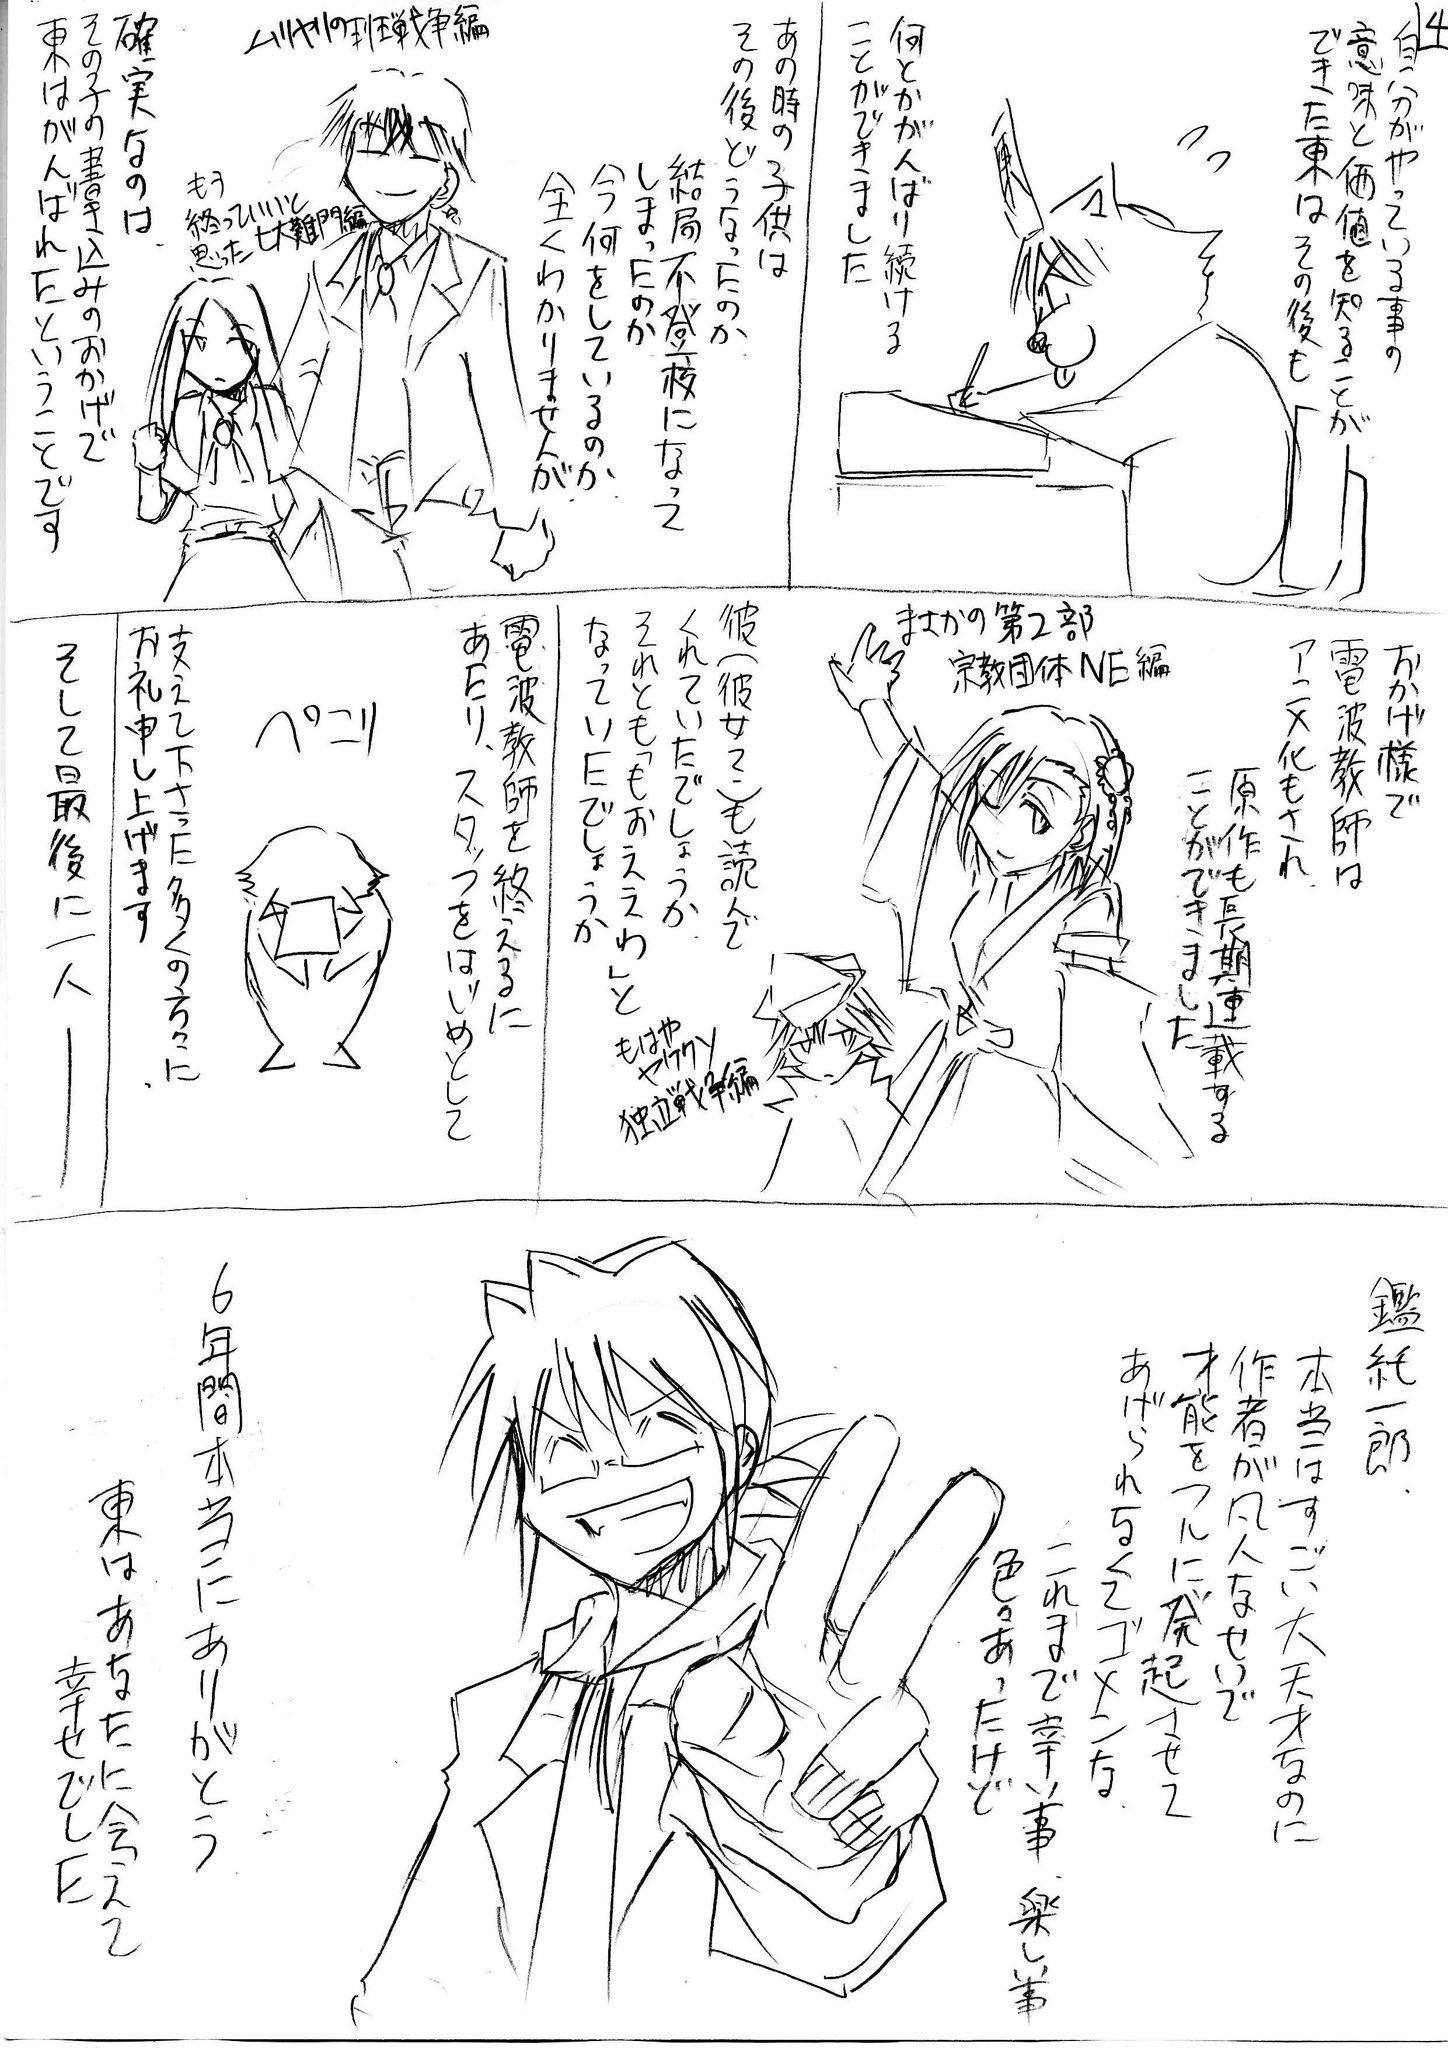 14
自分がやっている事の
意味と価値を知ることが
できた東はその後も
何とかがんばり続ける
ことができました
東
あの時の子供は
その後どうなったのか
結局不登校になって
しまったのか
今何をしているのか
全くわかりませんが
ムリヤリの班戦争編
もう
終っていいと
思った
七大難門編
確実なのは
その子の書き込みのおかげで
東はがんばれたということです
おかげ様で
電波教師は
アニメ化もされ
原作も長期連載する
ことができました
まさかの第2部
宗教団体NE編
もはや
ヤケクソ
独立戦争編
彼(彼女?)も読んで
くれていたでしょうか
それとも「もおええわ」と
なっていたでしょうか
電波教師を終えるに
あたり、スタッフをはじめとして
ペこり
支えて下さった多くの方々に
お礼申し上げます
そして最後に一人――
鑑純一郎
本当はすごい大天才なのに
作者が凡人なせいで
才能をフルに発起させて
あげられなくてゴメンな
これまで辛い事、楽しい事
色々あったけど
6年間本当にありがとう
東はあなたに会えて
幸せでした